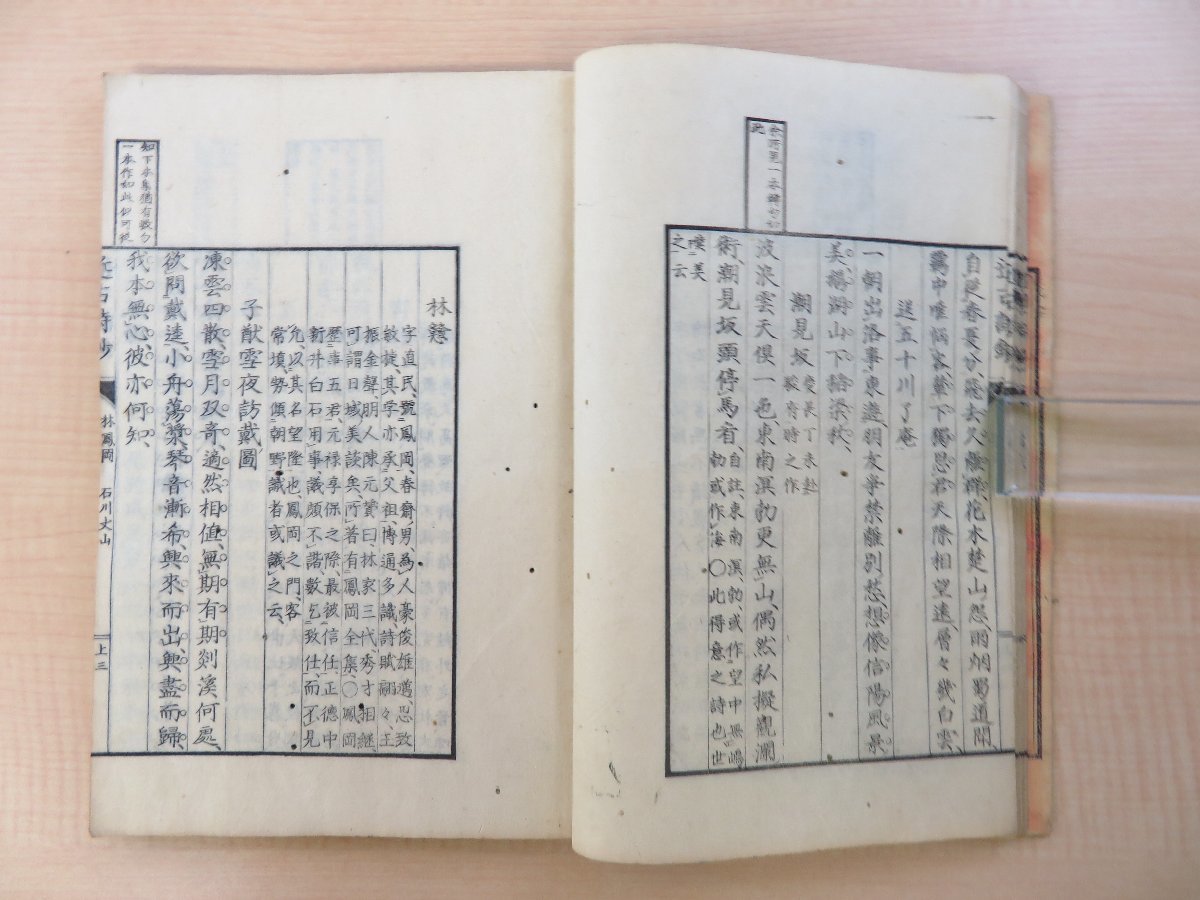 自從春夏分飛去久離群花木楚山怨雨烟蜀道聞
羈中唯悩客輦下獨思君天際相望遠層々幾白雲
送五十川了庵
一朝出洛事東遊朋友爭禁離別愁想像信陽風景
美揚鞭山下稔粱秋
潮見坂
慶長丁未赴
駿府時之作
波浪雲天倶一色東南溟勃更無山偶然私擬觀瀾
術潮見坂頭停馬看
自註東南溟勃或作望中無嶋
勃或作海〇此得意之詩也世
嘆美
之云
余所見一本
此
林戇
字直民號鳳岡春齋男為人豪俊雄邁思致
敏捷其学亦承父祖博通多識詩賦翩々玉
振金聲明人陳元贇曰林家三代秀才相継
可謂日域美談矣所著有鳳岡全集〇鳳岡
歷事五君元禄享保之際最被信任正德中
新井白石用事議頗不諧數乞致仕而不見
允以其名望隆也鳳岡之門客
常填勢傾朝野識者或議之云
子猷雪夜訪戴圖
凍雲四散雪月双奇適然相值無期有期剡溪何處
欲問戴逵小舟蕩槳琴音漸希興來而出興盡而歸
我本無心彼亦何知
知下本集猶有數句
一本作如此似可從
近古詩鈔
林鳳岡
石川丈山
上三